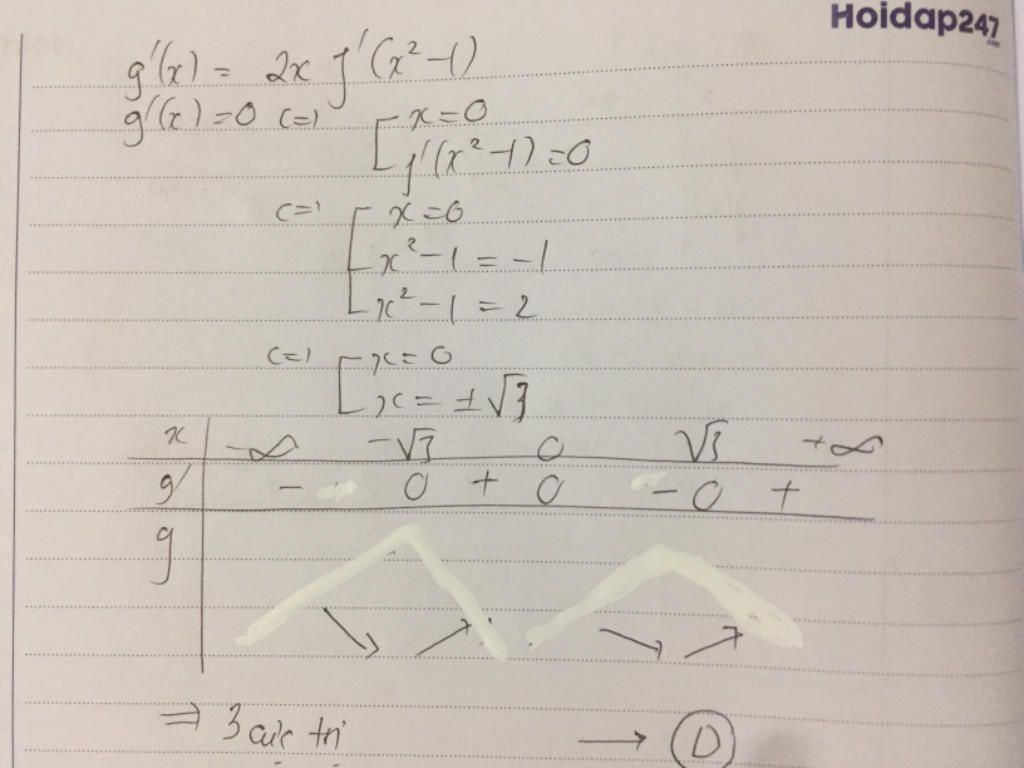 Hoidap247
g'(x) = 2x f'(x²-1)
g'(x)=0 <=> [ x=0
f'(x²-1)=0
<=> [ x=0
x²-1 = -1
x²-1 = 2
<=> [ x=0
x = ±√3
x | -∞ -√3 0 √3 +∞
g' | - 0 + 0 - 0 +
g | ↘ ↗ ↘ ↗
⇒ 3 cực trị → D